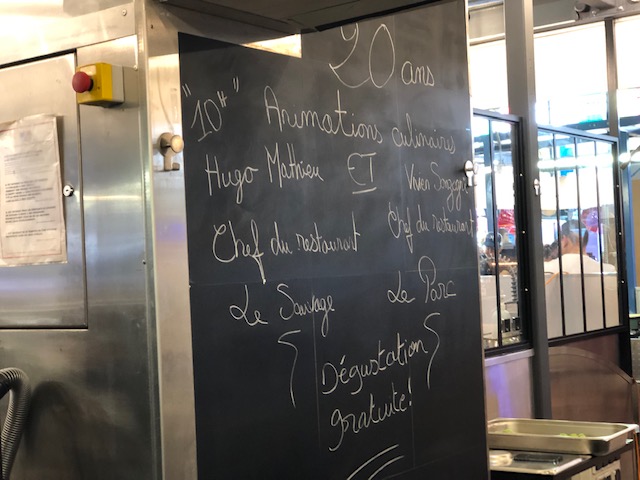 20 ans
"10H"
Animations culinaires
Hugo Mathieu ET Viven
Chef du restaurant Chef du restaurant
Le Sauvage Le Parc
Dégustation
gratuite!